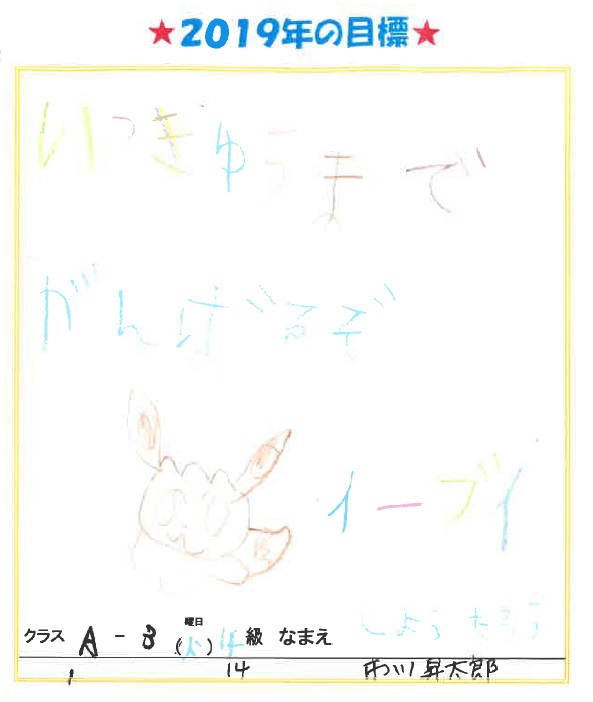 ★2019年の目標★
いっきゅうまで
がんばるぞ
イーブイ
クラス A-3 曜日 (火) 14級 なまえ しようたろう
1 14 市川 昇太郎